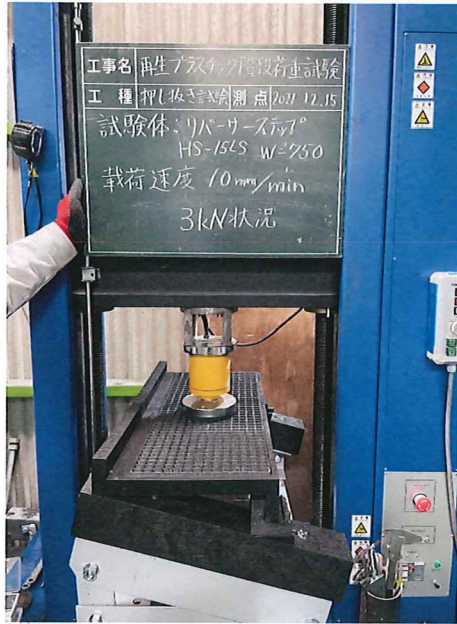 工事名 再生プラスチック階段荷重試験
工種 押し抜き試験 測点 2021 12.15
試験体:リバーサーステップ
HS-15LS W=750
載荷速度 10mm/min
3kN状況